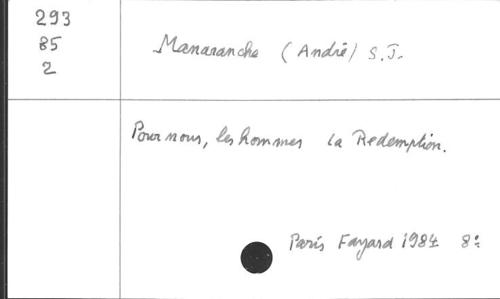 293
85
2
Manaranche (André) S.J.
Pour nous, les hommes la Redemption.
Paris Fayard 1984 8º